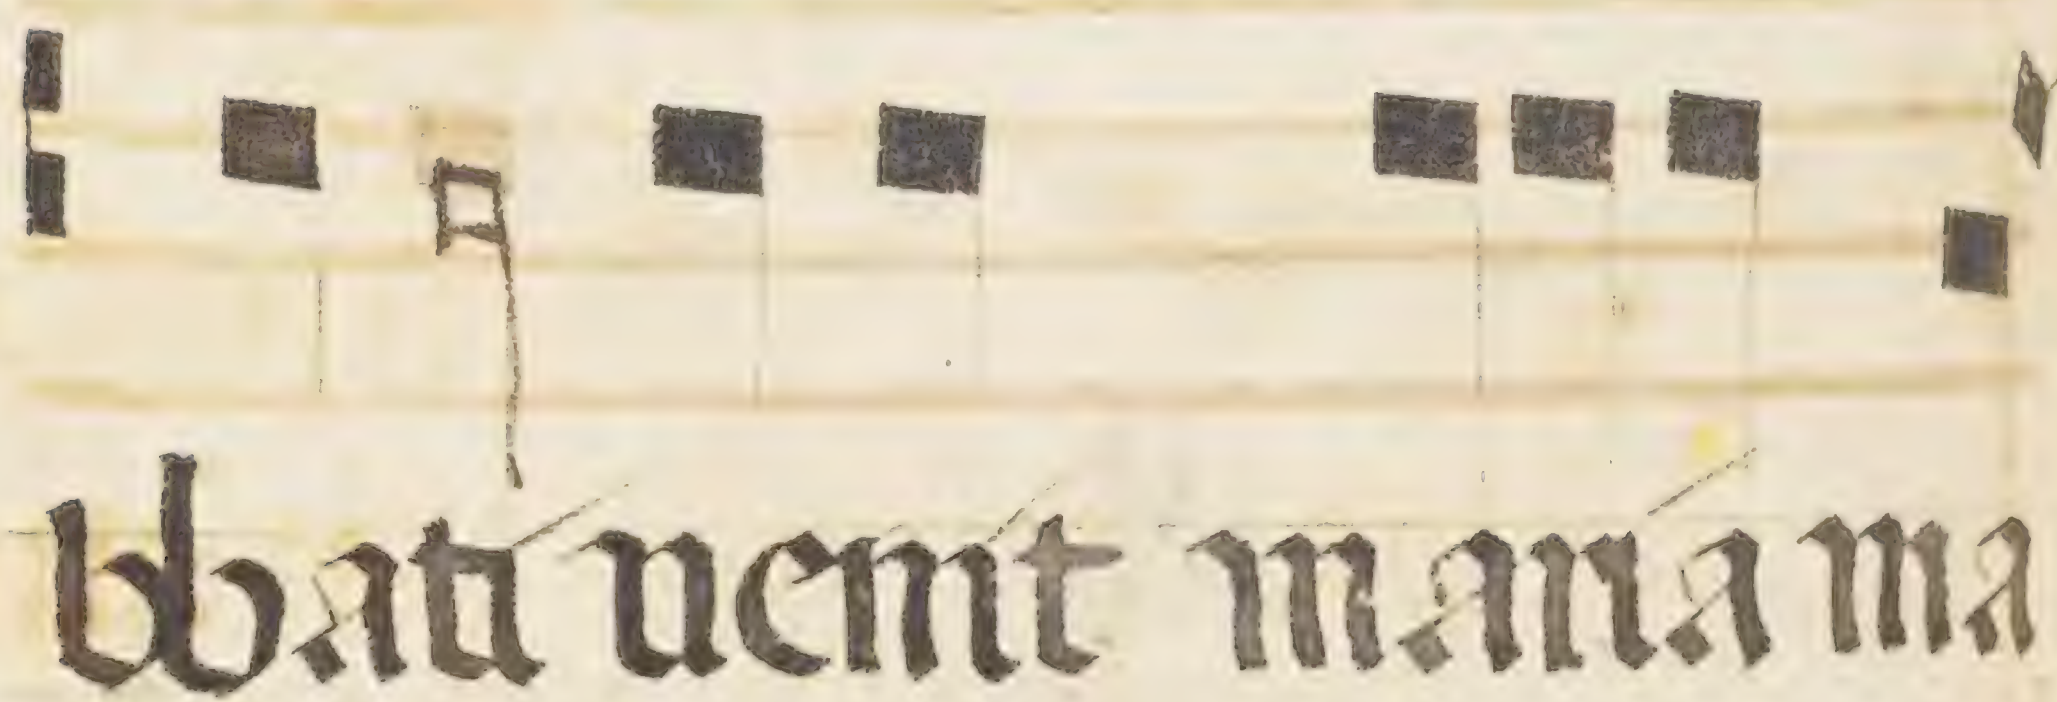 bbati uenit maria ma